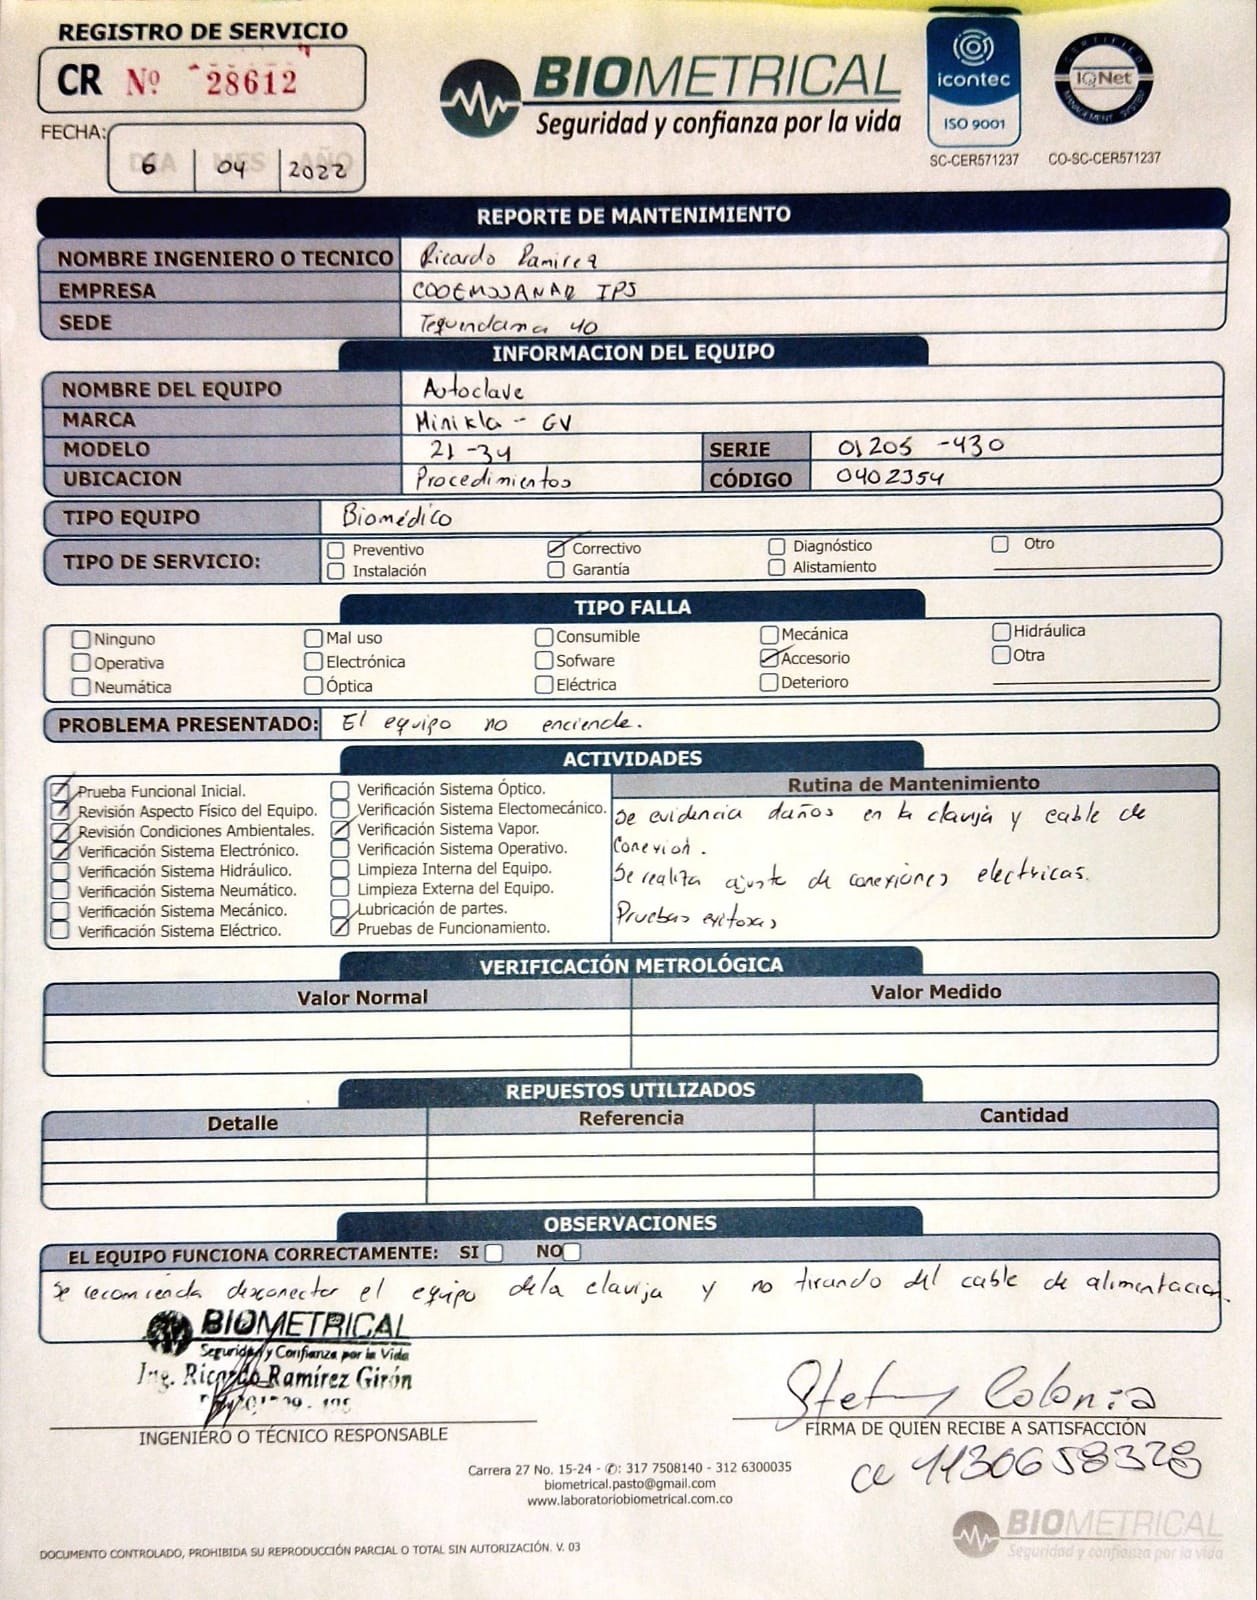 REGISTRO DE SERVICIO
CR Nº 28612
FECHA:
DIA MES AÑO
6 04 2022
BIOMETRICAL
Seguridad y confianza por la vida
icontec
ISO 9001
SC-CER571237
CERTIFIED
IQNet
MANAGEMENT SYSTEM
CO-SC-CER571237
REPORTE DE MANTENIMIENTO
NOMBRE INGENIERO O TECNICO Ricardo Ramirez
EMPRESA COOEMSSANAR IPS
SEDE Tequendama 40
INFORMACION DEL EQUIPO
NOMBRE DEL EQUIPO Autoclave
MARCA Minikla - GV
MODELO 21-34 SERIE 01205 -430
UBICACION Procedimientos CÓDIGO 0402354
TIPO EQUIPO Biomédico
TIPO DE SERVICIO:
Preventivo Correctivo Diagnóstico Otro
Instalación Garantía Alistamiento
TIPO FALLA
Ninguno Mal uso Consumible Mecánica Hidráulica
Operativa Electrónica Sofware Accesorio Otra
Neumática Óptica Eléctrica Deterioro
PROBLEMA PRESENTADO: El equipo no enciende.
ACTIVIDADES
Prueba Funcional Inicial.
Revisión Aspecto Físico del Equipo.
Revisión Condiciones Ambientales.
Verificación Sistema Electrónico.
Verificación Sistema Hidráulico.
Verificación Sistema Neumático.
Verificación Sistema Mecánico.
Verificación Sistema Eléctrico.
Verificación Sistema Óptico.
Verificación Sistema Electomecánico.
Verificación Sistema Vapor.
Verificación Sistema Operativo.
Limpieza Interna del Equipo.
Limpieza Externa del Equipo.
Lubricación de partes.
Pruebas de Funcionamiento.
Rutina de Mantenimiento
Se evidencia daños en la clavija y cable de
conexion.
Se realiza ajuste de conexiones electricas.
Pruebas exitosas
VERIFICACIÓN METROLÓGICA
Valor Normal Valor Medido
REPUESTOS UTILIZADOS
Detalle Referencia Cantidad
OBSERVACIONES
EL EQUIPO FUNCIONA CORRECTAMENTE: SI NO
Se recomienda desconectar el equipo dela clavija y no tirando del cable de alimentacion.
BIOMETRICAL
Seguridad y Confianza por la Vida
Ing. Ricardo Ramírez Girón
INGENIERO O TÉCNICO RESPONSABLE
Stefany Colonia
FIRMA DE QUIEN RECIBE A SATISFACCIÓN
cc 1130658328
Carrera 27 No. 15-24 - ✆: 317 7508140 - 312 6300035
biometrical.pasto@gmail.com
www.laboratoriobiometrical.com.co
BIOMETRICAL
Seguridad y confianza por la vida
DOCUMENTO CONTROLADO, PROHIBIDA SU REPRODUCCIÓN PARCIAL O TOTAL SIN AUTORIZACIÓN. V. 03